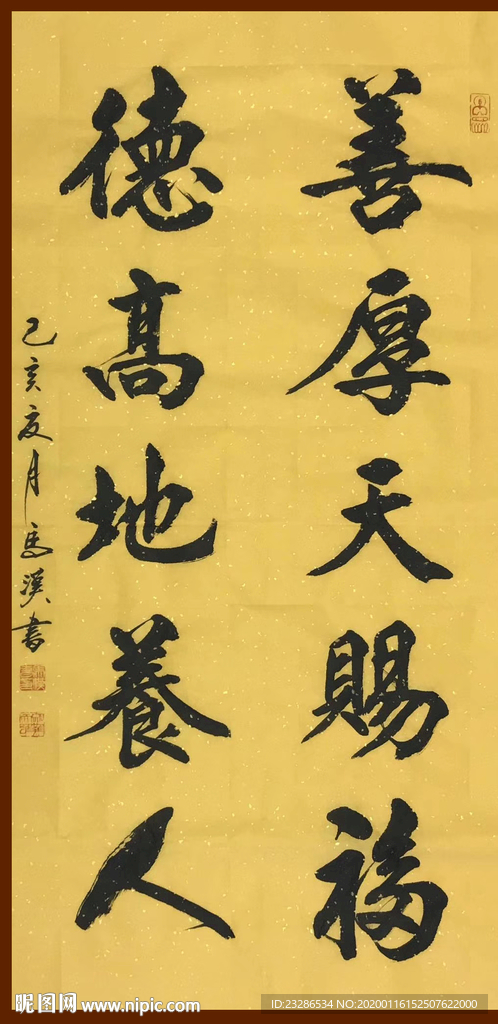 善厚天賜福
德高地養人
己亥夏月馬溪書
昵图网 www.nipic.com
ID:23286534 NO:20200116152507622000